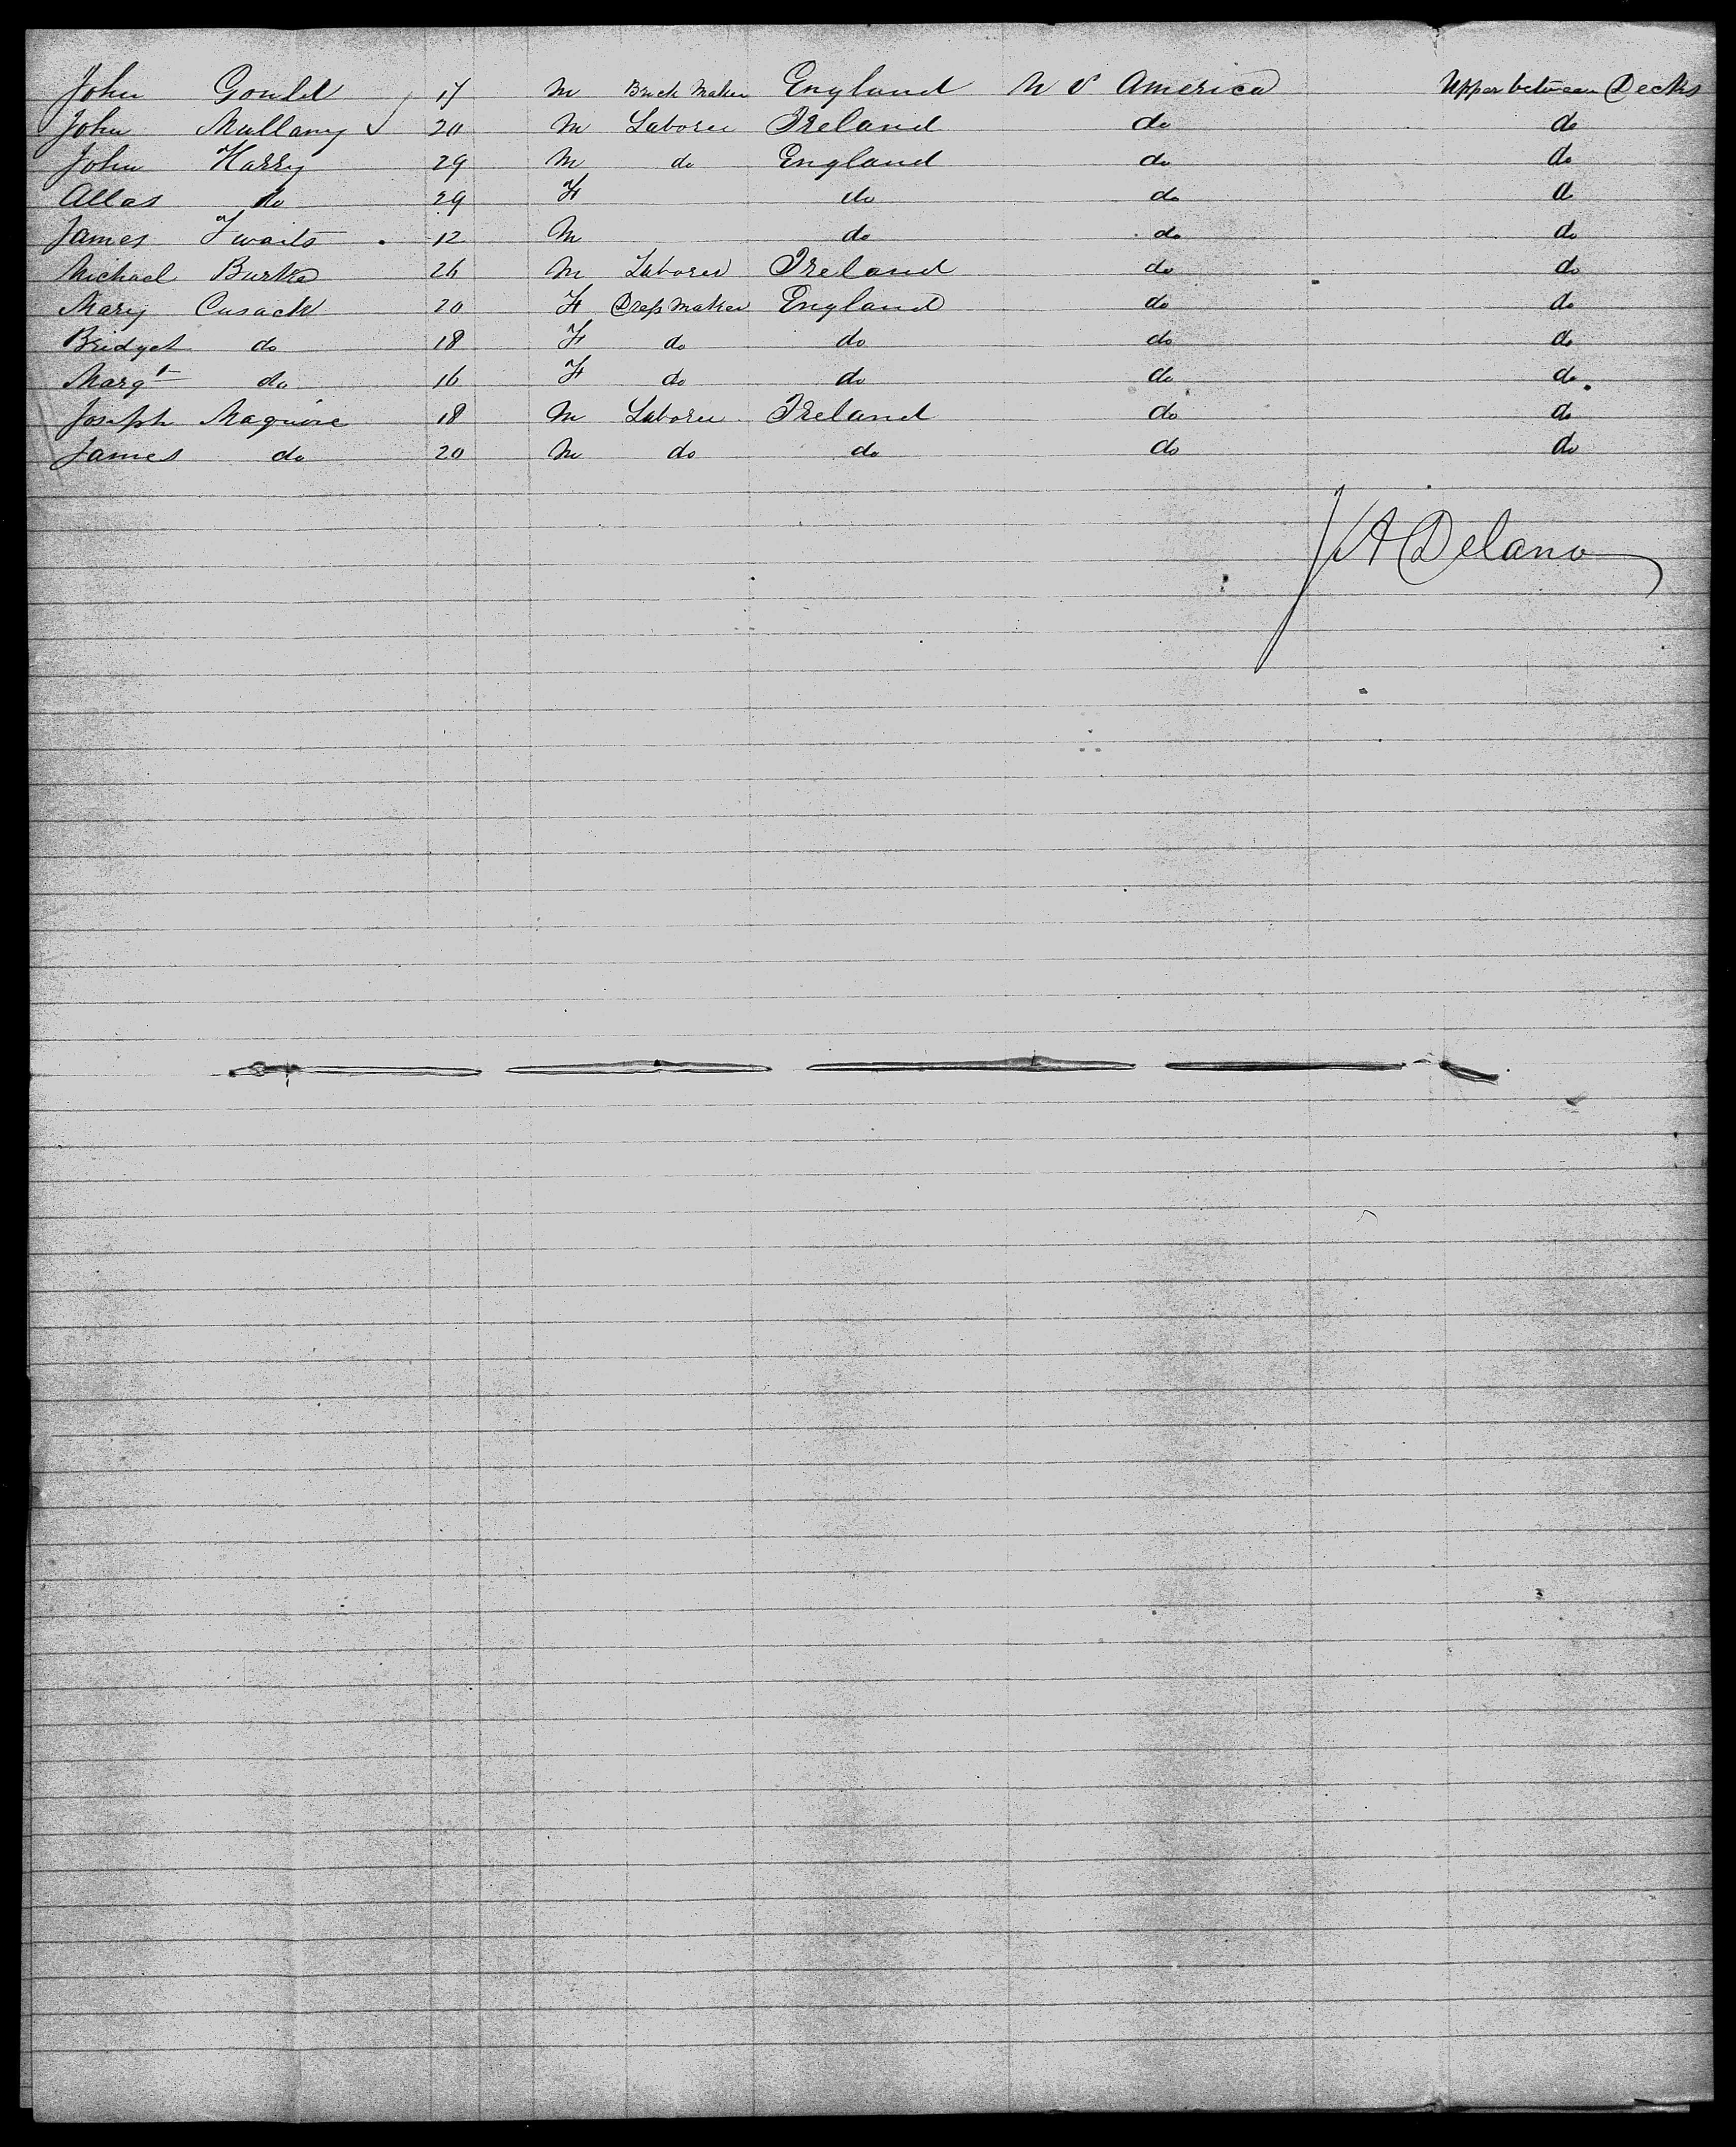 John Gould 17 M Brick Maker England U S America Upper between Decks
John Mullany 20 M Laborer Ireland do do
John Harry 29 M do England do do
Allas do 29 F do do do
James Twaits 12 M do do do
Michael Burke 26 M Laborer Ireland do do
Mary Cusack 20 F Dress Maker England do do
Bridget do 18 F do do do do
Margt do 16 F do do do do
Joseph Maguire 18 M Laborer Ireland do do
James do 20 M do do do do
J A Delano